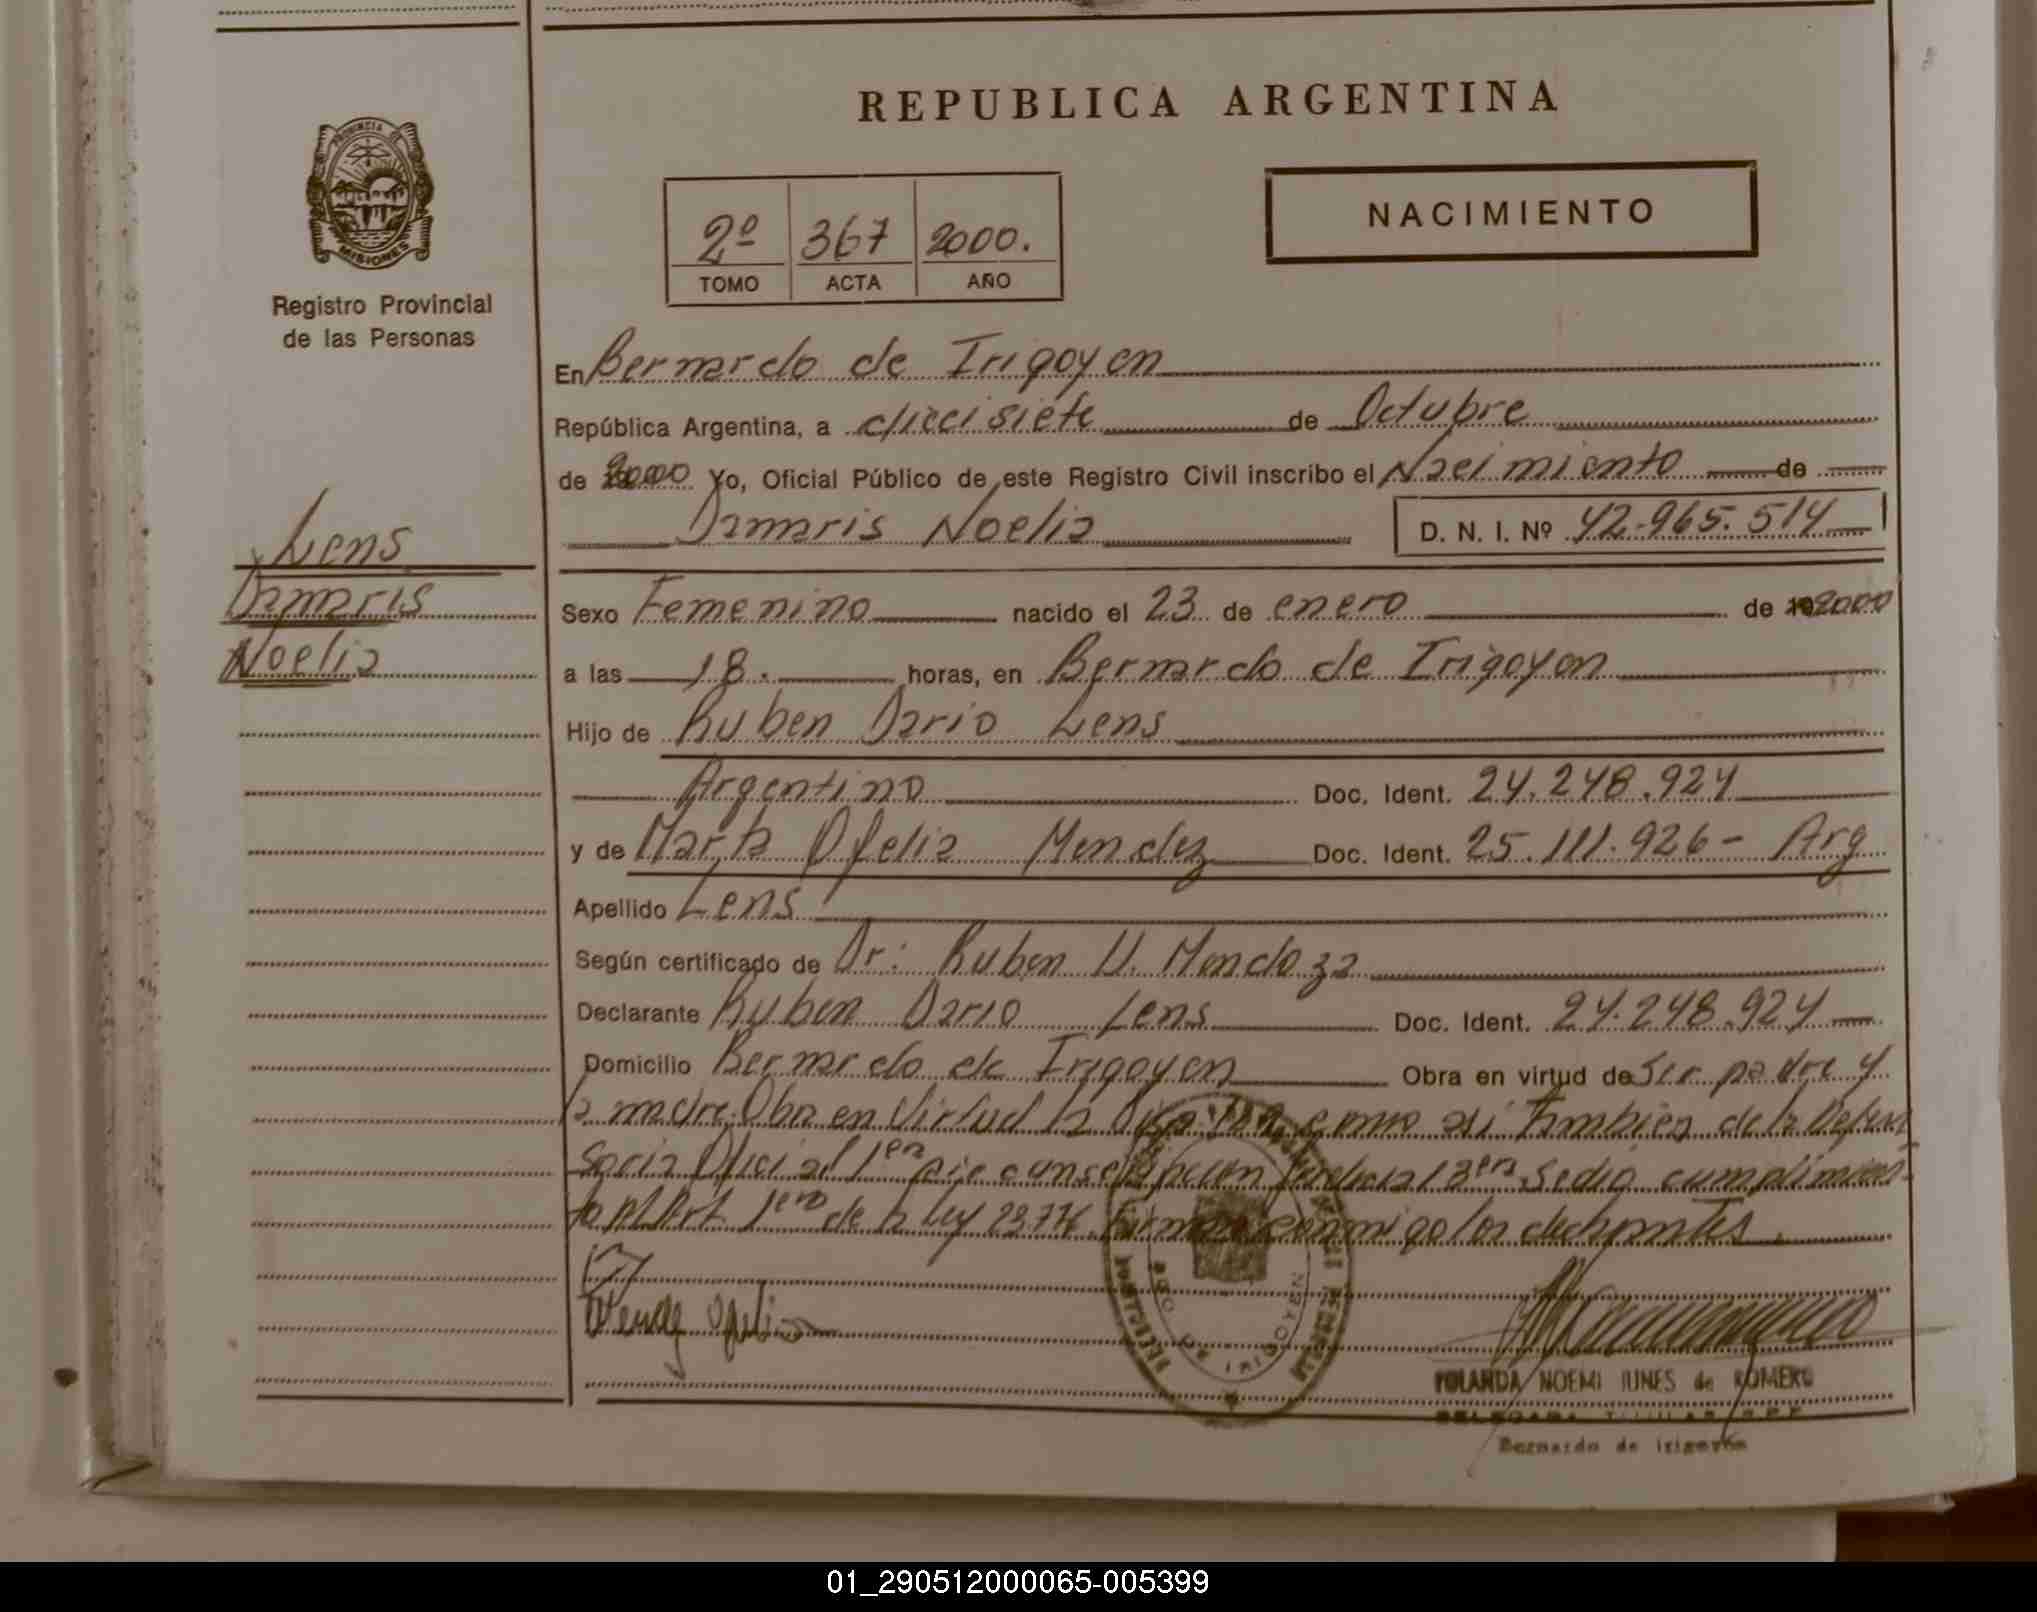 REPUBLICA ARGENTINA
PROVINCIA DE
MISIONES
Registro Provincial
de las Personas
2º 367 2000.
TOMO ACTA AÑO
NACIMIENTO
En Bernardo de Irigoyen
República Argentina, a diecisiete de Octubre
de 2000 Yo, Oficial Público de este Registro Civil inscribo el Nacimiento de
Damaris Noelia D. N. I. Nº 42.965.514
Lens
Damaris
Noelia
Sexo Femenino nacido el 23 de enero de 2000
a las 18. horas, en Bernardo de Irigoyen
Hijo de Ruben Dario Lens
Argentino Doc. Ident. 24.248.924
y de Marta Ofelia Mendez Doc. Ident. 25.111.926 - Arg
Apellido Lens
Según certificado de Dr: Ruben U. Mendoza
Declarante Ruben Dario Lens Doc. Ident. 24.248.924
Domicilio Bernardo de Irigoyen Obra en virtud de Ser padre y
la madre. Obra en Virtud la como asi Tambien de la Defen
soria Oficial 1era 3era Se dio cumplimien-
to al Art 1ero de la Ley 23.776. Firman conmigo los declarantes.
Mendez Ofelia
BDO DE IRIGOYEN
YOLANDA NOEMI IUNES de ROMERO
DELEGADA TITULAR R.P.P.
Bernardo de Irigoyen
01_290512000065-005399